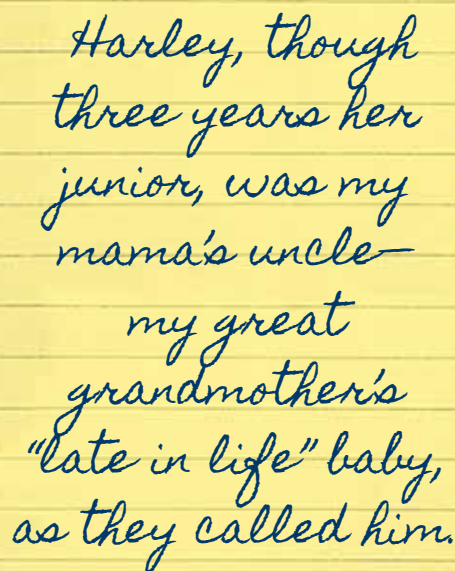 Harley, though
three years her
junior, was my
mama's uncle—
my great
grandmother's
"late in life" baby,
as they called him.